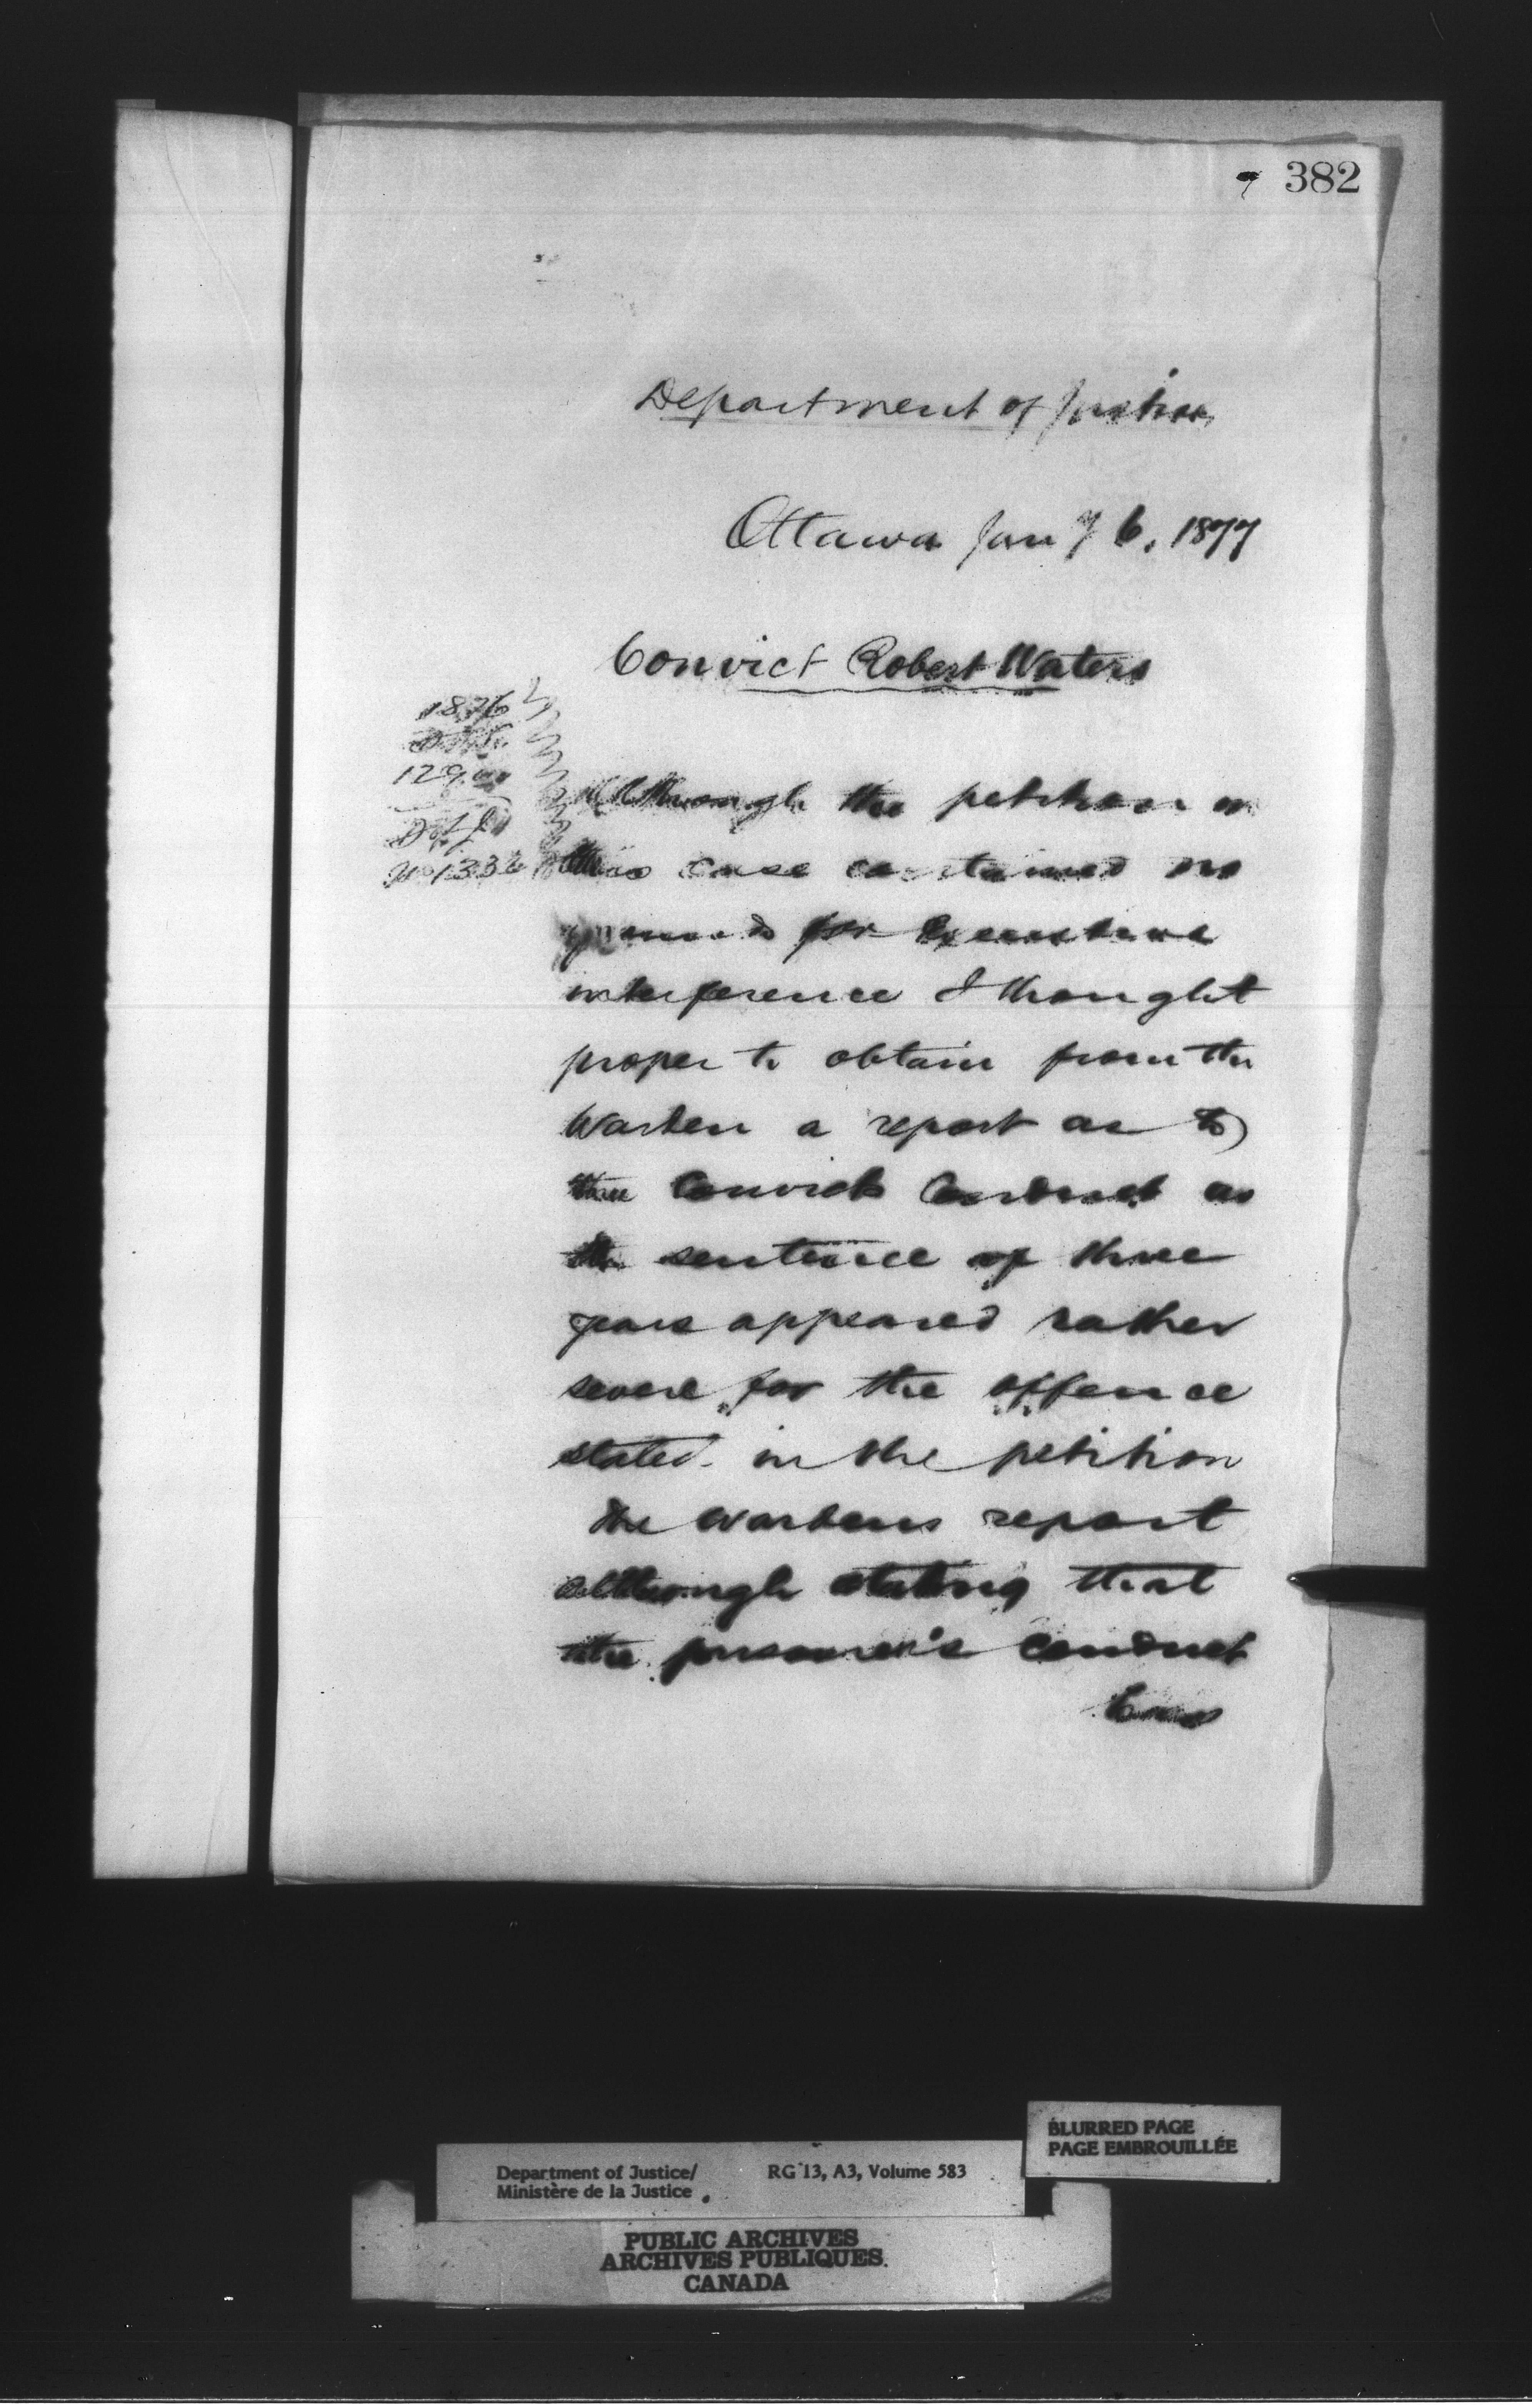 382
Department of Justice,
Ottawa Jany 6, 1877
Convict Robert Waters
1876
129
No 1336
Although the petition in
this case contained no
grounds for Executive
interference I thought
proper to obtain from the
Warden a report as to
the Convicts Conduct as
the sentence of three
years appeared rather
severe for the offence
stated in the petition
The Wardens report
although stating that
the prisoner's conduct
BLURRED PAGE
PAGE EMBROUILLÉE
Department of Justice/ RG 13, A3, Volume 583
Ministère de la Justice
PUBLIC ARCHIVES
ARCHIVES PUBLIQUES
CANADA